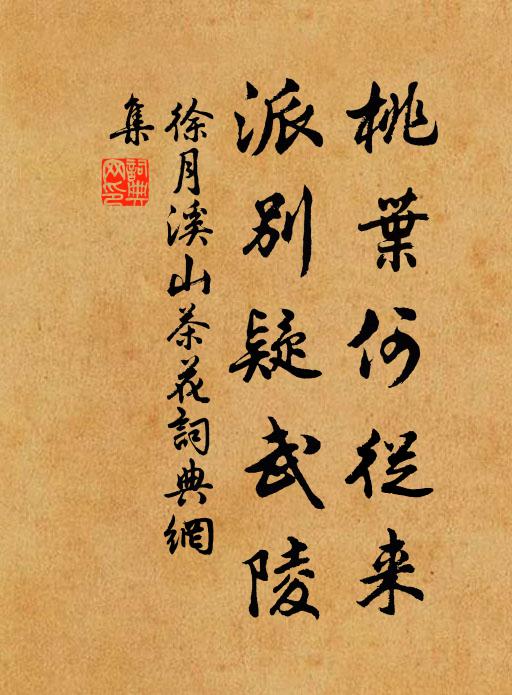 桃葉何從来
派別疑武陵
徐月溪山茶花詞典網
集
詞典網印